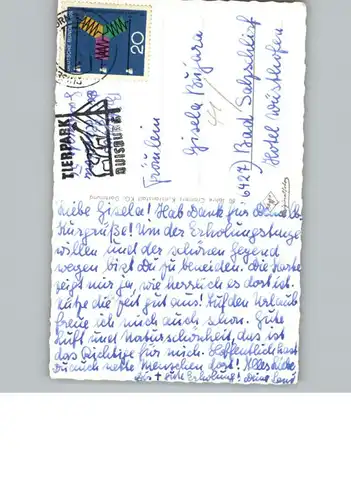 20
TIERPARK
DUISBURG
Fräulein
Gisela
6427) Bad Salzschlirf
Hotel Wüsthofen
Liebe Gisela! Hab Dank für Deine
Kurgrüße! Um der Erholungstage
willen und der schönen Gegend
wegen bist Du zu beneiden. Die Karte
zeigt mir ja, wie herrlich es dort ist.
Nütze die Zeit gut aus! Auf den Urlaub
freue ich mich auch schon. Gute
Luft und Naturschönheit, das ist
das Richtige für mich. Hoffentlich hast
Du auch nette Menschen dort! Alles Liebe
+ gute Erholung! Deine